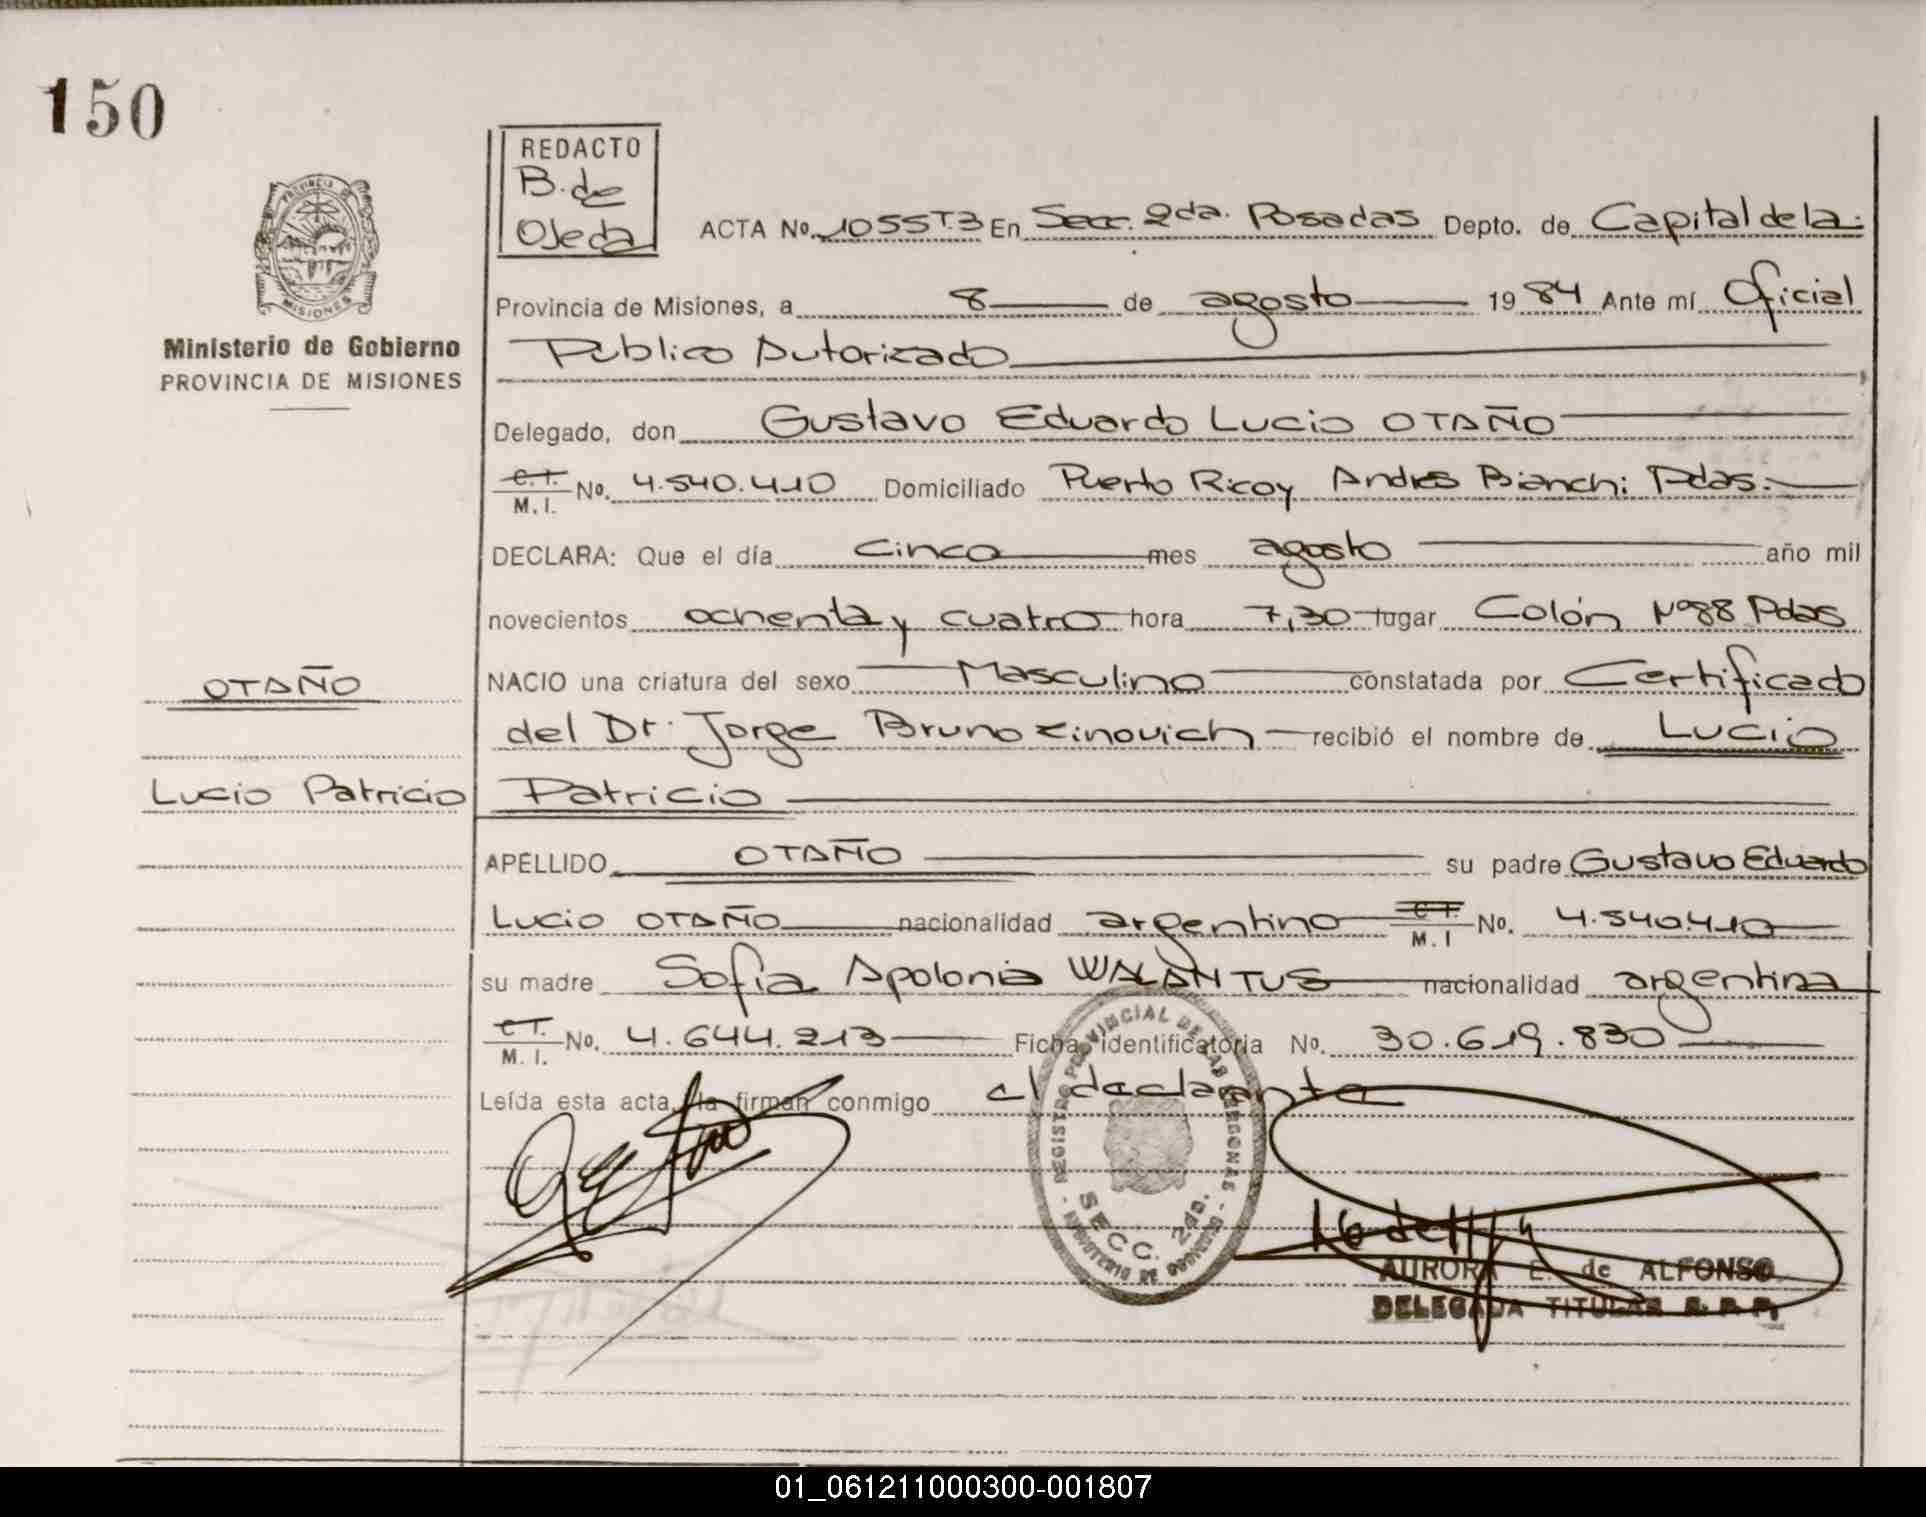 150
REDACTO
B. de
Ojeda
PROVINCIA DE
MISIONES
Ministerio de Gobierno
PROVINCIA DE MISIONES
ACTA No. 1055T3 En Secc. 2da. Posadas Depto. de Capital de la
Provincia de Misiones, a 8 de agosto 1984 Ante mí Oficial
Publico Autorizado
Delegado, don Gustavo Eduardo Lucio OTAÑO
C.I. M.I. No. 4.540.410 Domiciliado Puerto Rico y Andres Bianchi Pdas.
DECLARA: Que el día cinco mes agosto año mil
novecientos ochenta y cuatro hora 7,30 lugar Colón Nº88 Pdas
OTAÑO
NACIO una criatura del sexo Masculino constatada por Certificado
del Dr. Jorge Bruno Zinovich recibió el nombre de Lucio
Lucio Patricio
Patricio
APELLIDO OTAÑO su padre Gustavo Eduardo
Lucio OTAÑO nacionalidad argentino C.I. M.I No. 4.540.410
su madre Sofia Apolonia WALANTUS nacionalidad argentina
C.I. M.I. No. 4.644.213 Ficha identificatoria No. 30.619.830
Leída esta acta, la firman conmigo el declarante
REGISTRO PROVINCIAL DE LAS PERSONAS
SECC. 2da.
MINISTERIO DE GOBIERNO
AURORA E. de ALFONSO
DELEGADA TITULAR R. P. P.
01_061211000300-001807